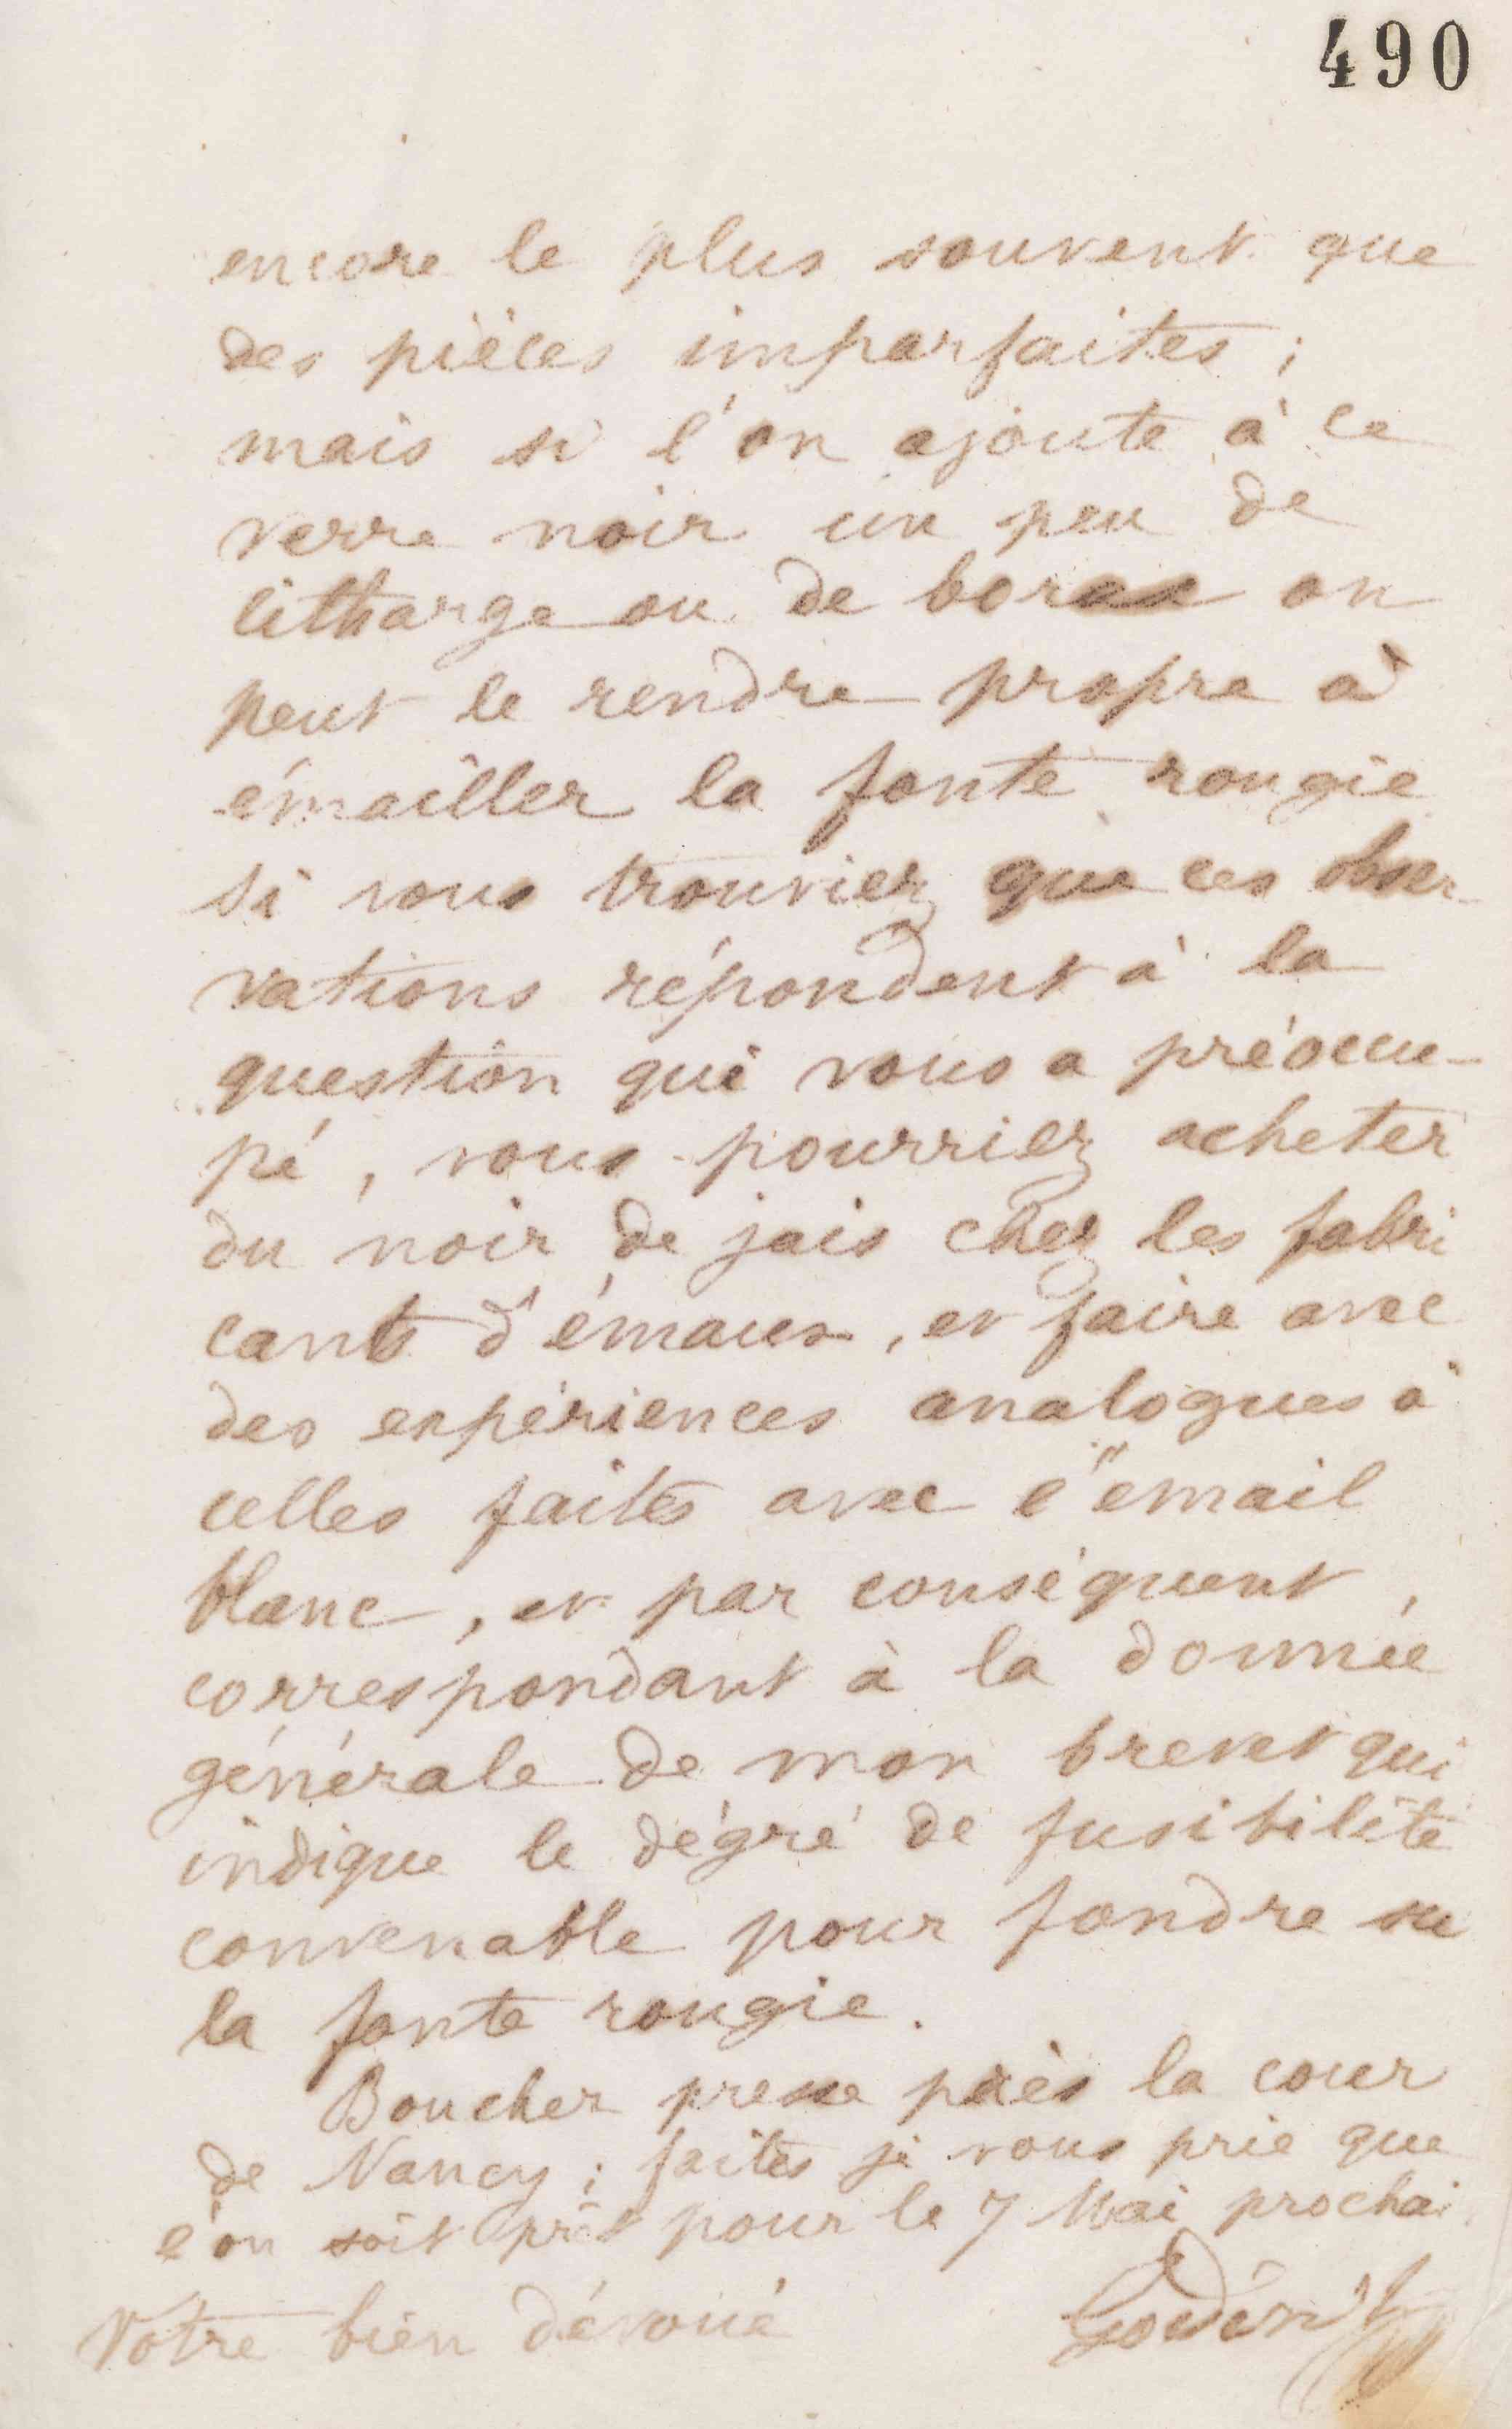 490
encore le plus souvent que
des pièces imparfaites ;
mais si l'on ajoute à ce
verre noir un peu de
litharge ou de borax on
peut le rendre propre à
émailler la fonte rougie
si vous trouviez que ces obser-
vations répondent à la
question qui vous a préoccu-
pé, vous pourriez acheter
du noir de jais chez les fabri
cants d'émaux, et faire avec
des expériences analogues à
celles faites avec l'émail
blanc, et par conséquent,
correspondant à la donnée
générale de mon brevet qui
indique le dégré de fusibilité
convenable pour fondre su
la fonte rougie.
Boucher presse près la cour
de Nancy ; faites je vous prie que
l'on soit prêt pour le 7 Mai prochai
Votre bien dévoué Godin